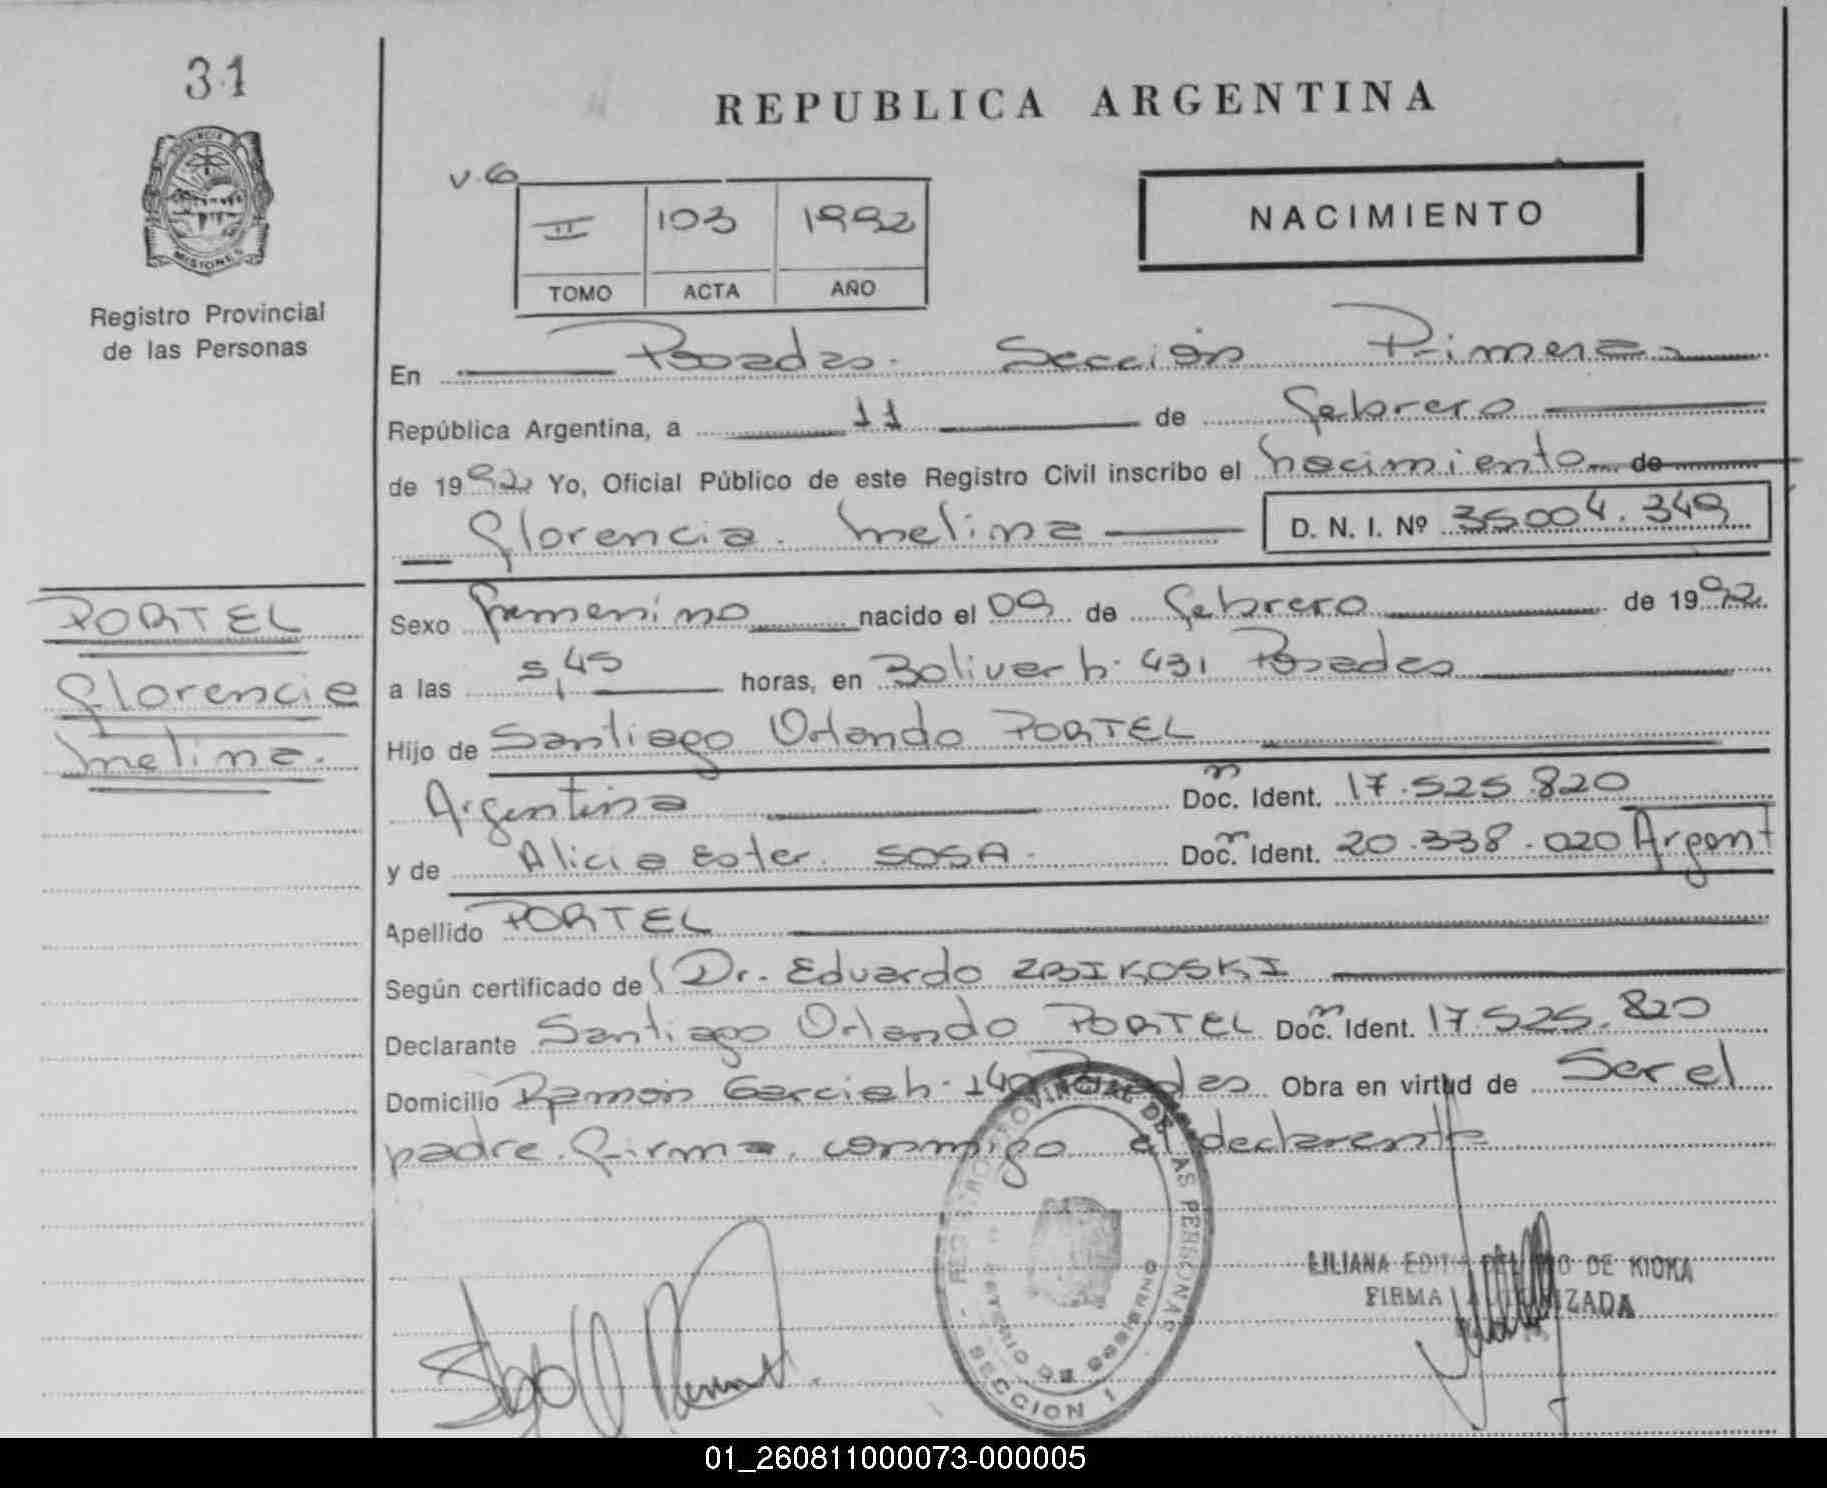 31
REPUBLICA ARGENTINA
PROVINCIA
MISIONES
Registro Provincial
de las Personas
v.6
II 103 1992
TOMO ACTA AÑO
NACIMIENTO
En Posadas. Sección Primera
República Argentina, a 11 de febrero
de 1992 Yo, Oficial Público de este Registro Civil inscribo el nacimiento de
Florencia Melina D. N. I. Nº 36004.349
PORTEL
Florencia
Melina.
Sexo femenino nacido el 09 de febrero de 1992
a las 5,45 horas, en Bolivar h. 431 Posadas
Hijo de Santiago Orlando PORTEL
Argentina Doc. Ident. 17.525.820
y de Alicia Ester SOSA Doc. Ident. 20.338.020 Argent
Apellido PORTEL
Según certificado de Dr. Eduardo ZBIKOSKI
Declarante Santiago Orlando PORTEL Doc. Ident. 17.525.820
Domicilio Ramón Garcia h. 149 Posadas Obra en virtud de Ser el
padre. firma conmigo el declarante
PROVINCIAL DE LAS PERSONAS
DE GOBIERNO
SECCION 1
LILIANA DE KIOKA
FIRMA AUTORIZADA
01_260811000073-000005